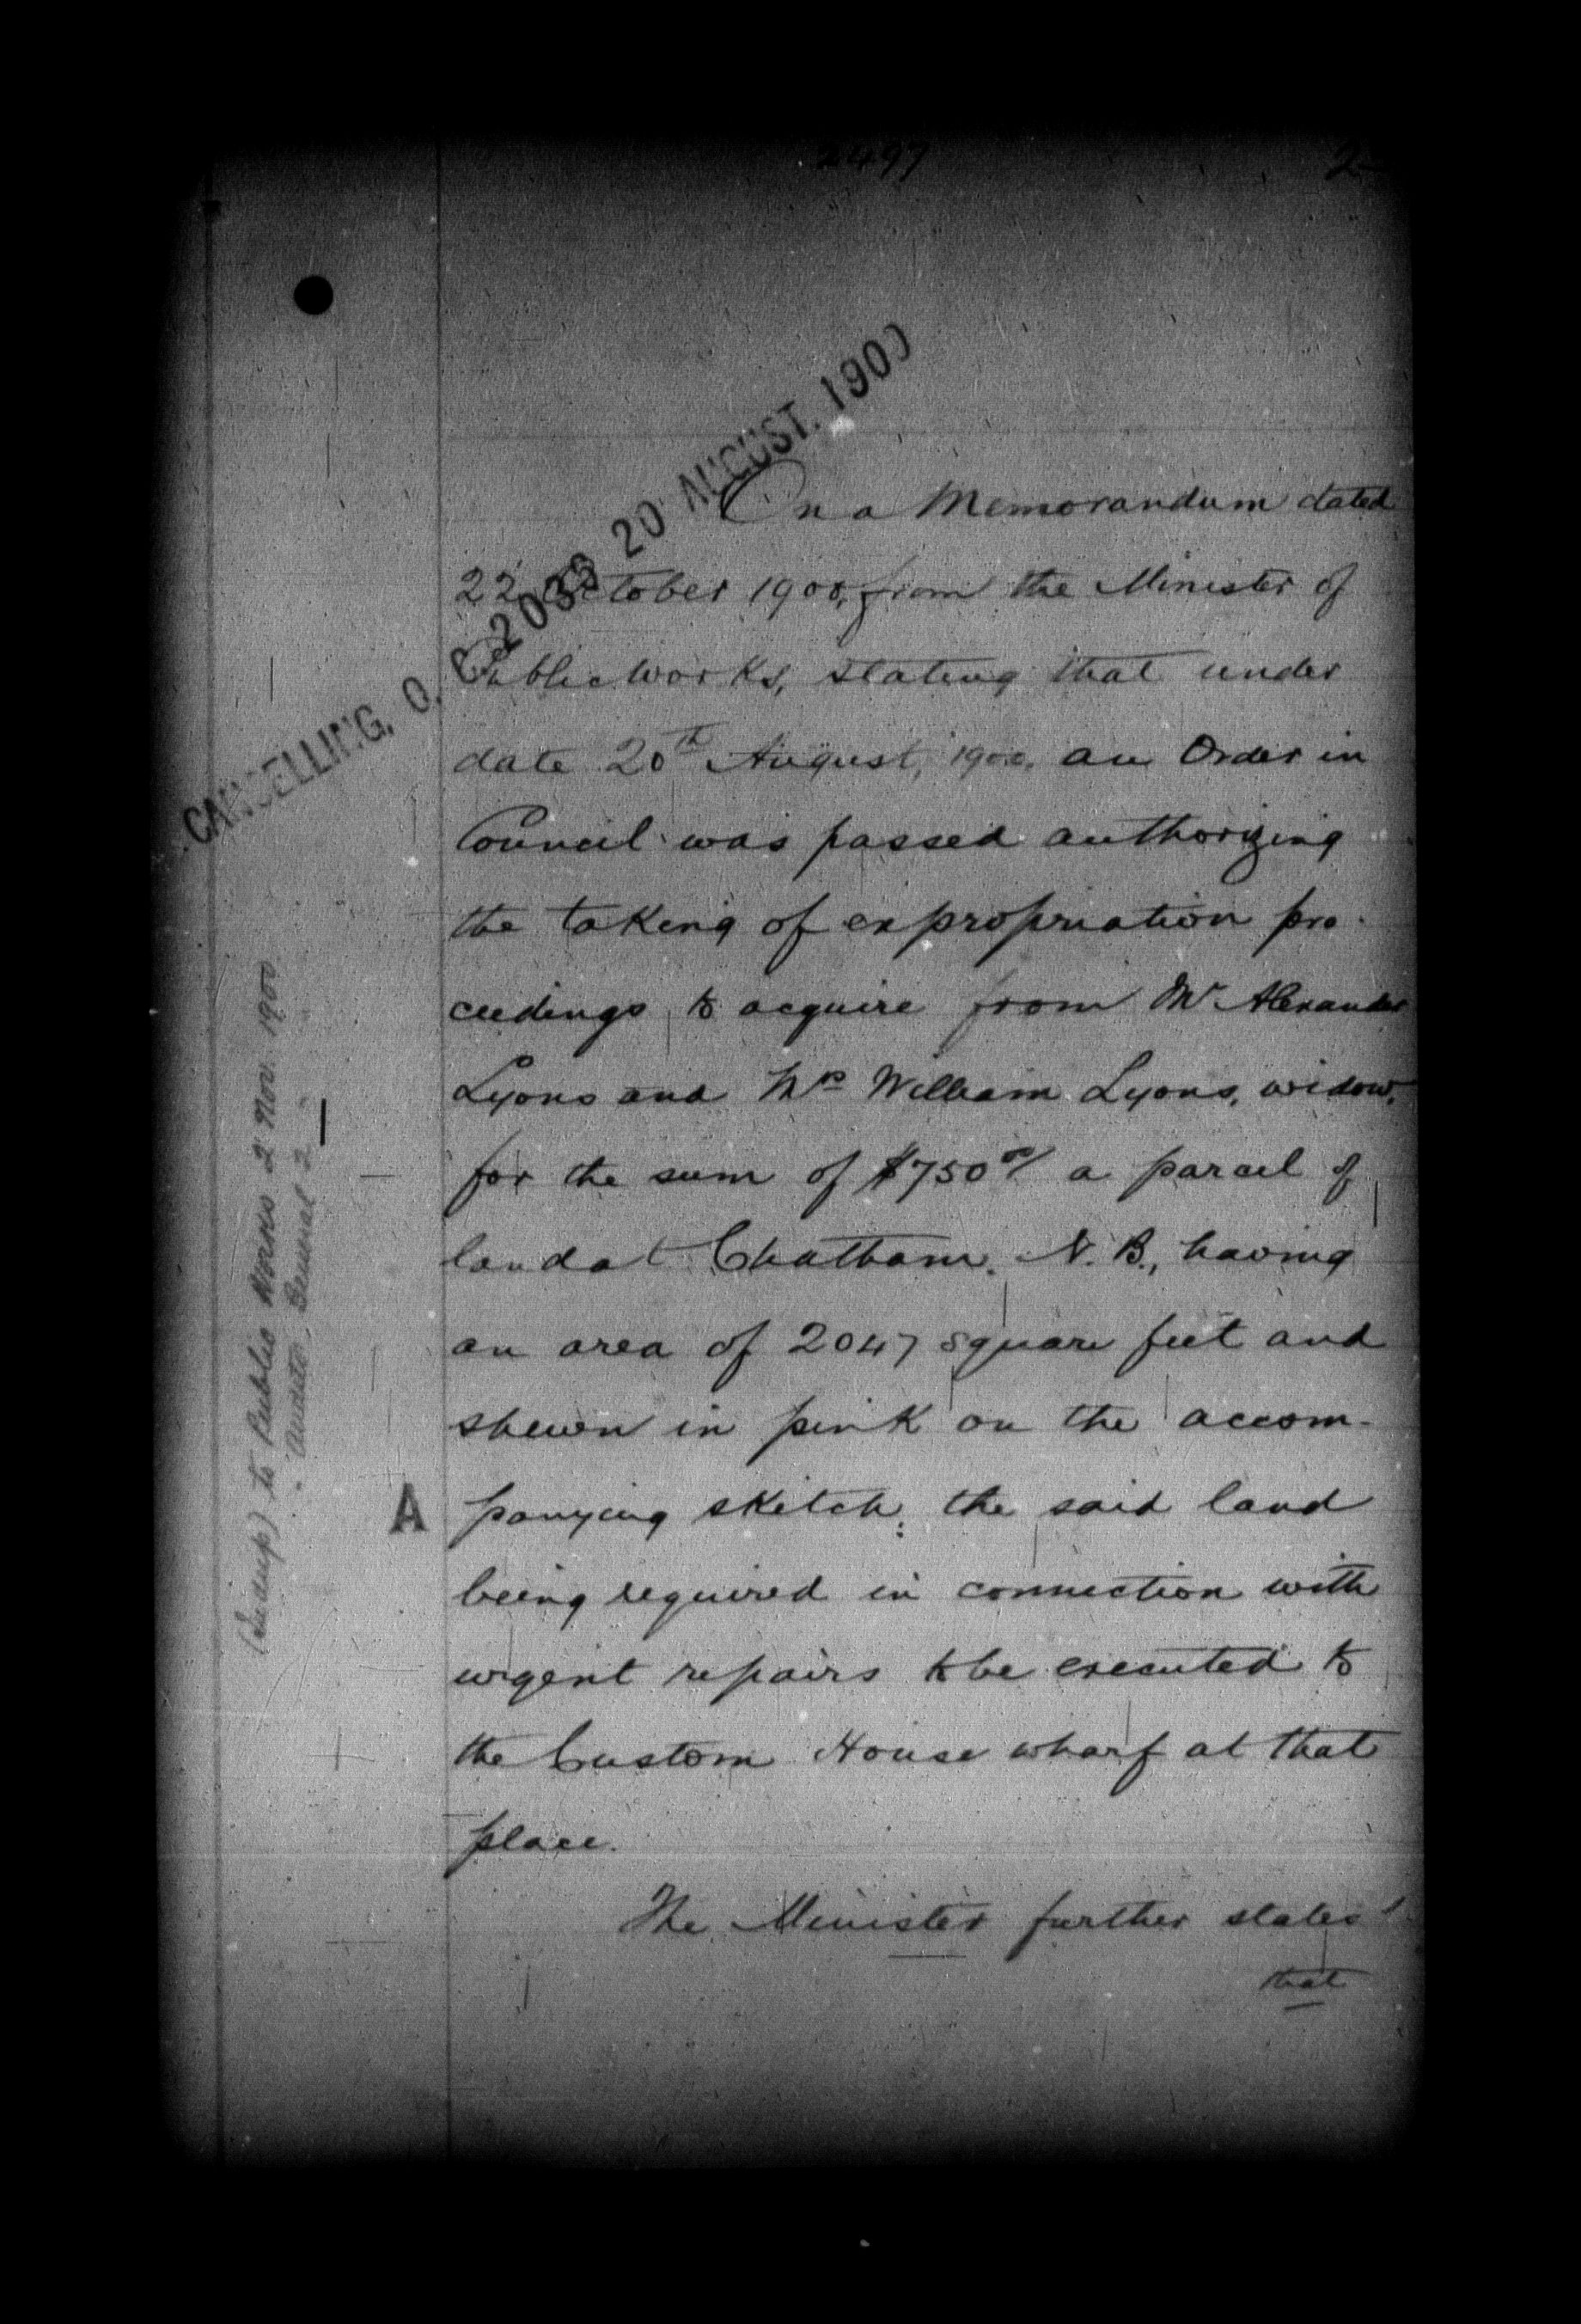 2497
2
CANCELLING. O. C. 2033 20 AUGUST. 1900
On a Memorandum dated
22 October 1900, from the Minister of
Public Works, stating that under
date 20th August, 1900, an Order in
Council was passed authorizing
the taking of expropriation pro-
ceedings to acquire from Mr Alexander
Lyons and Mrs William Lyons, widow,
for the sum of $750 00/ a parcel of
land at Chatham. N. B., having
an area of 2047 square feet and
shewn in pink on the accom-
A
panying sketch; the said land
being required in connection with
urgent repairs to be executed to
the Custom House wharf at that
place.
The Minister further states
that
to Public Works 2 Nov. 1900
" Auditor General 2 "